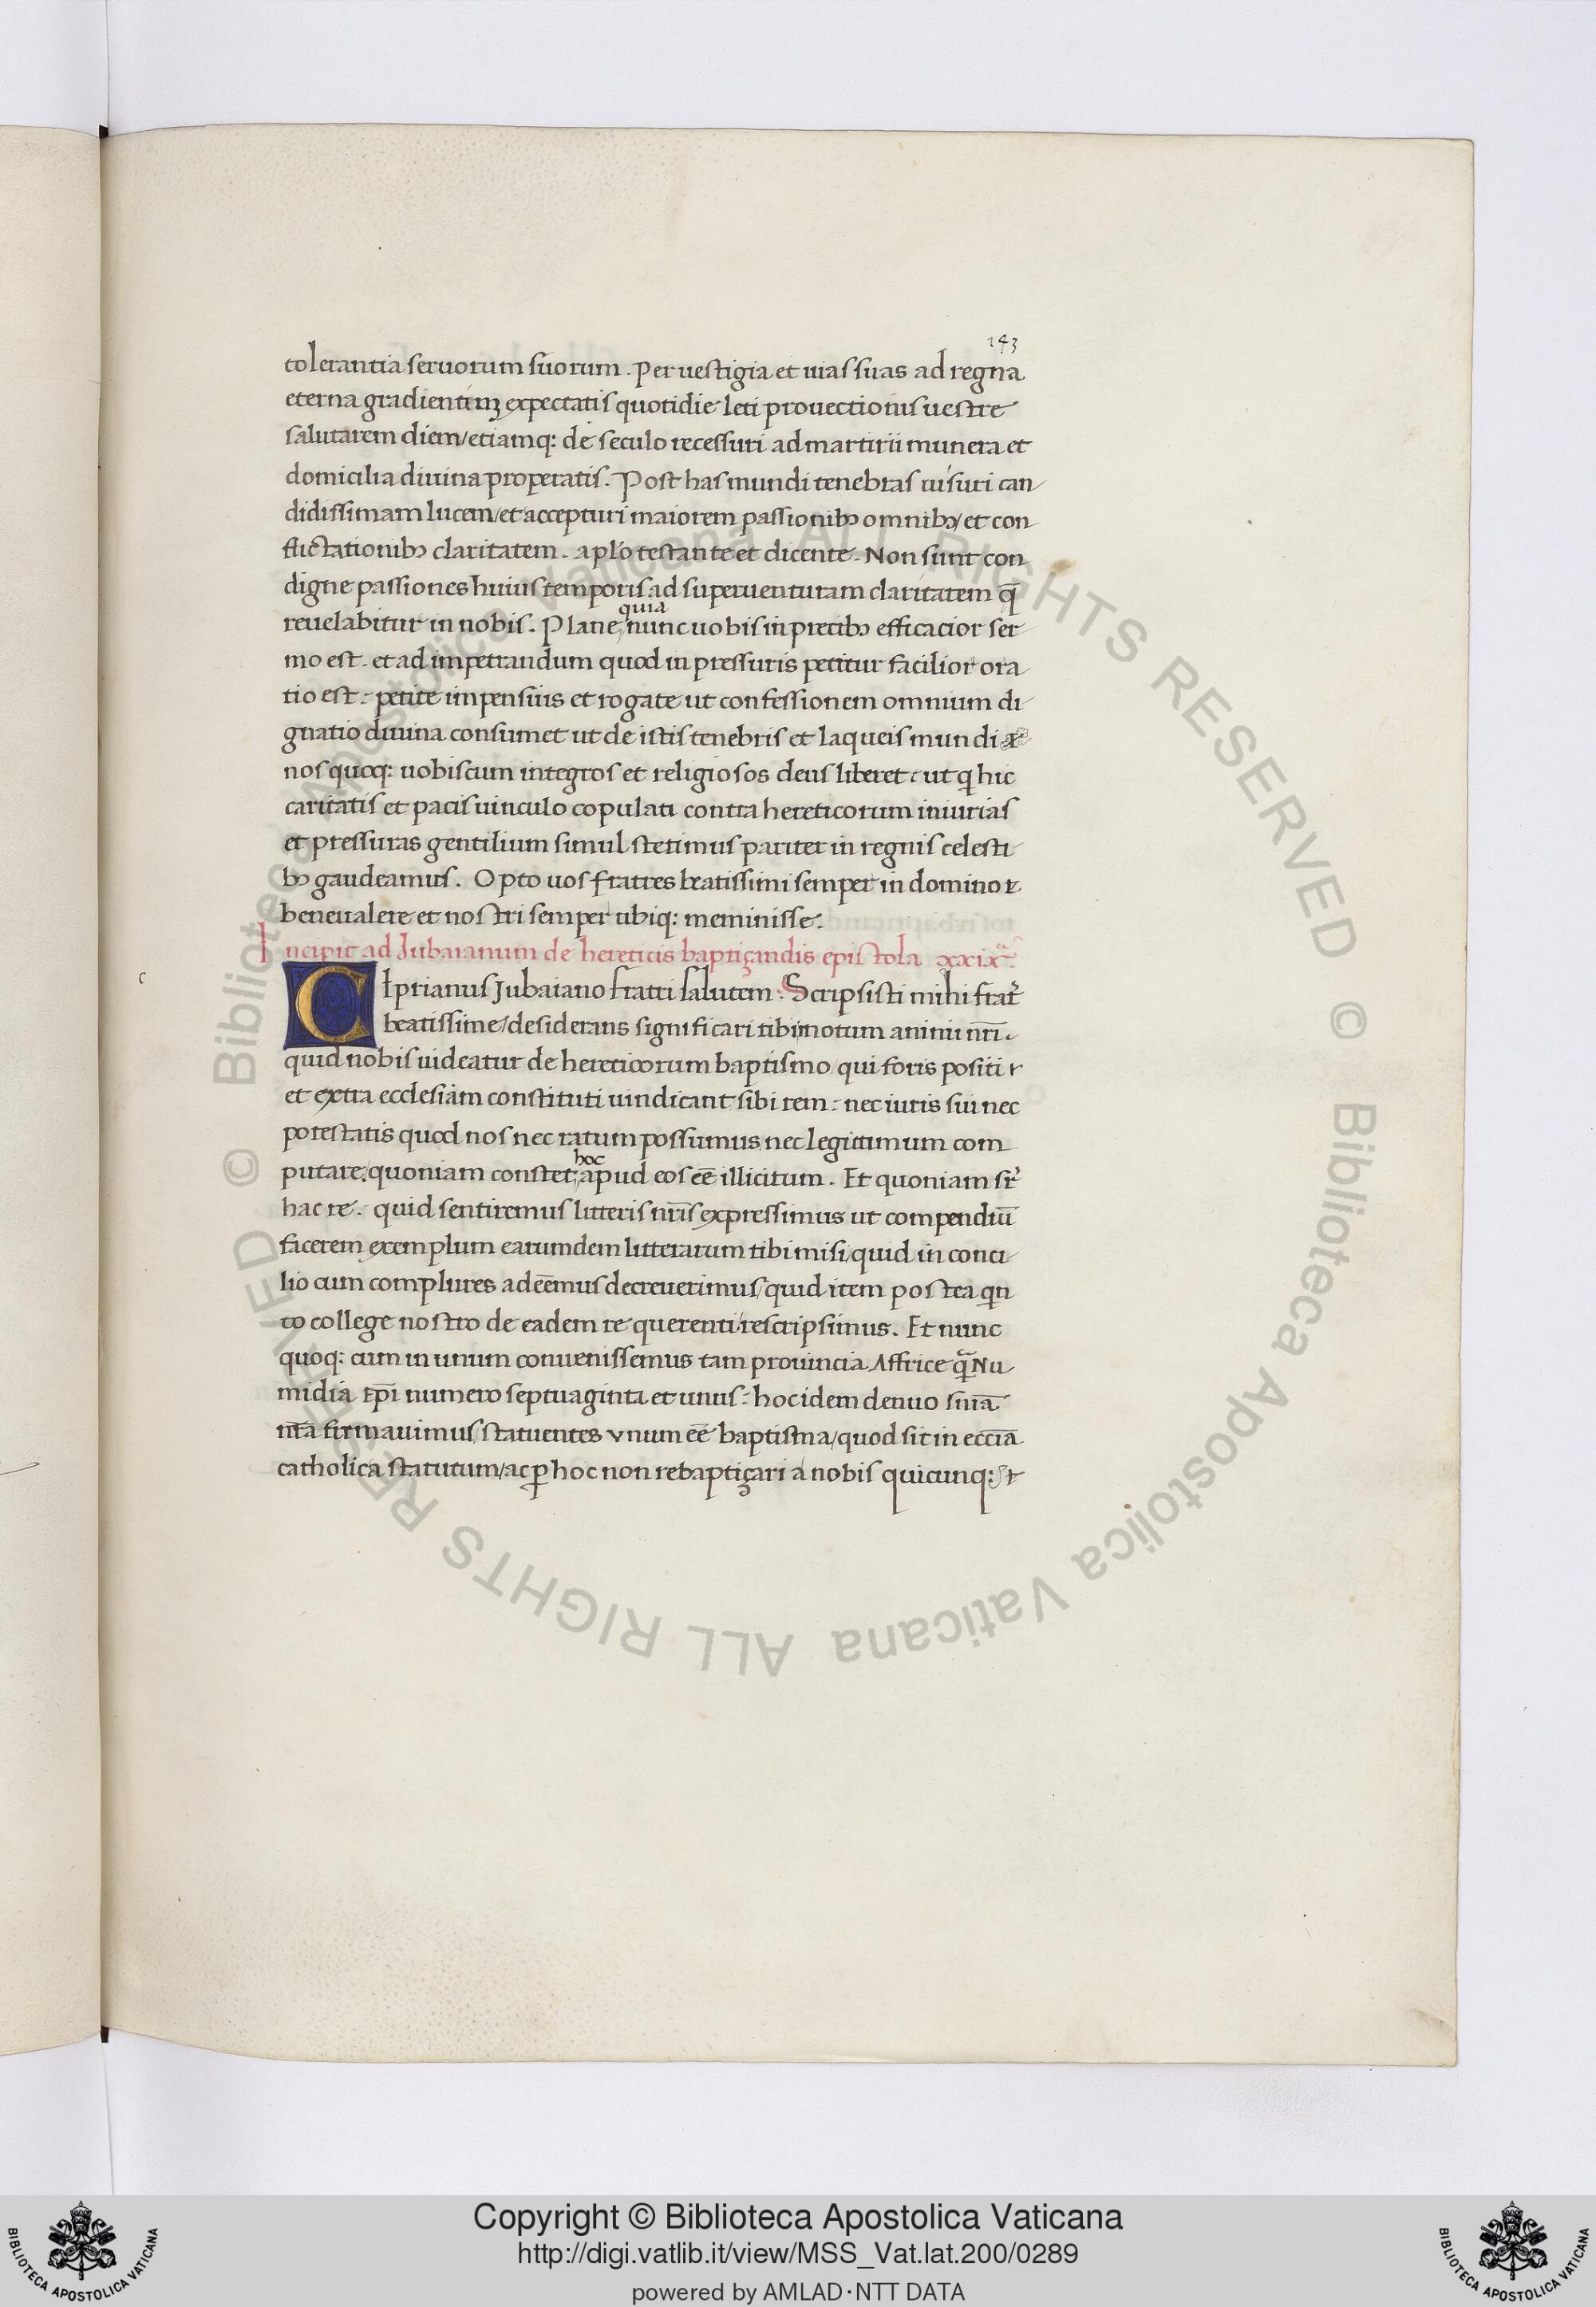 143
tolerantia seruorum suorum. Per uestigia et uias suas ad regna
eterna gradientiuꝫ expectatis quotidie leti prouectionis uestre
salutarem diem/etiamq: de seculo recessuri ad martirii munera et
domicilia diuina properatis. Post has mundi tenebras uisuri can
didissimam lucem/et accepturi maiorem passionibꝰ omnibꝰ/et con
flictationibꝰ claritatem. aplo testante et dicente. Non sunt con
digne passiones huius temporis ad superuenturam claritatem q̄
quia
reuelabitur in nobis. Plane nunc uobis in precibꝰ efficacior ser
mo est. et ad impetrandum quod in pressuris petitur facilior ora
tio est: petite impensius et rogate ut confessionem omnium di
gnatio diuina consumet ut de istis tenebris et laqueis mundi
nos quoq: uobiscum integros et religiosos deus liberet: ut q hic
caritatis et pacis uinculo copulati contra hereticorum iniurias
et pressuras gentilium simul stetimus pariter in regnis celesti
bꝰ gaudeamus. Opto uos fratres beatissimi semper in domino
bene ualere et nostri semper ubiq: meminisse.
Incipit ad Iubaianum de hereticis baptiçandis epistola xxixᵃ.
c
Ciprianus Jubaiano fratri salutem: Scripsisti mihi frat᷑
beatissime/desiderans significari tibi motum animi nr̄i.
quid nobis uideatur de hereticorum baptismo qui foris positi
et extra ecclesiam constituti uindicant sibi rem: nec iuris sui nec
potestatis quod nos nec ratum possumus nec legittimum com
hoc
putare, quoniam constet apud eos eē illicitum. Et quoniam sr̄
hac re. quid sentiremus litteris nr̄is expressimus ut compendiū
facerem exemplum earumdem litterarum tibi misi/quid in conci
lio cum complures adeēmus decreuerimus/quid item postea qn
to college nostro de eadem re querenti rescripsimus. Et nunc
quoq: cum in unum conuenissemus tam prouincia Affrice qᵃ Nu
midia ep̄i numero septuaginta et unus: hoc idem denuo sn̄ia
nr̄a firmauimus/statuentes vnum eē baptisma/quod sit in eccīa
catholica statutum/ac ꝑ hoc non rebaptiçari a nobis quicunq:
Copyright © Biblioteca Apostolica Vaticana
http://digi.vatlib.it/view/MSS_Vat.lat.200/0289
powered by AMLAD·NTT DATA